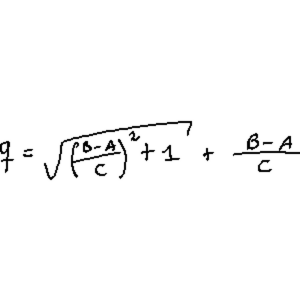 q = √((B-A)/C)² + 1 + (B-A)/C